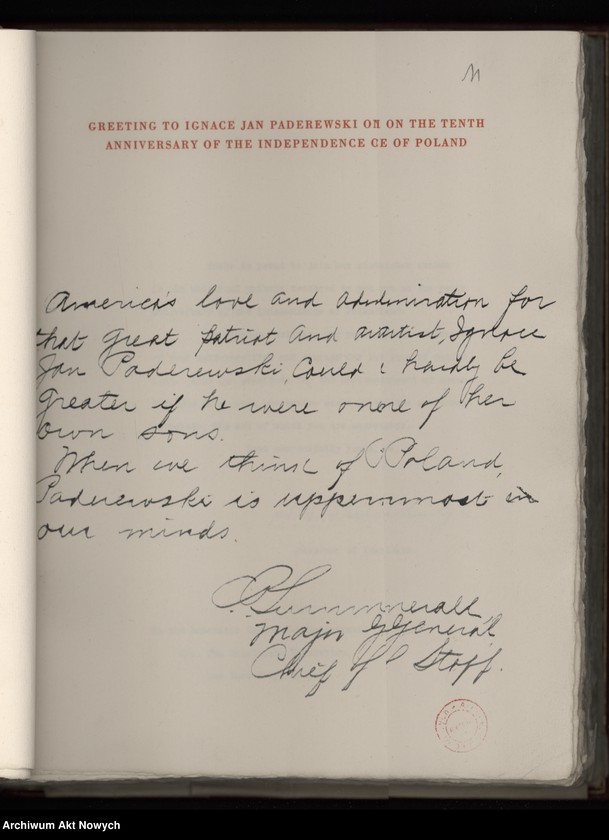 11
GREETING TO IGNACE JAN PADEREWSKI ON ON THE TENTH
ANNIVERSARY OF THE INDEPENDENCE CE OF POLAND
America's love and admiration for
that great patriot and artist, Ignace
Jan Paderewski, could hardly be
greater if he were one of her
own sons.
When we think of Poland,
Paderewski is uppermost in
our minds.
C. P. Summerall
Major General
Chief of Staff.
Archiwum Akt Nowych